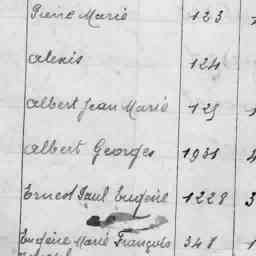 Pierre Marie 123
Alexis 124
Albert Jean Marie 125
Albert Georges 1931
Ernest Paul Eugène 1228 3
Eugène Marie François 348 1